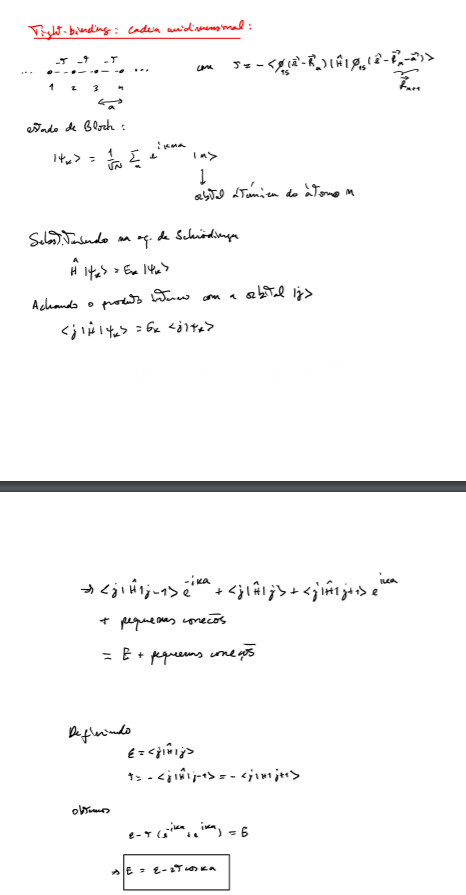 Tight-binding: cadeia unidimensional:
-τ -τ -τ
... ...
1 2 3 4
a
com τ = -<φ₁ₛ(r⃗-R⃗ₙ)|Ĥ|φ₁ₛ(r⃗-R⃗ₙ-a⃗)>
R⃗ₙ₊₁
estado de Bloch:
|ψₖ> = 1/√N Σₙ e^{ikna} |n>
↓
orbital atômico do átomo n
Substituindo na eq. de Schrödinger
Ĥ|ψₖ> = Eₖ|ψₖ>
Achando o produto interno com o orbital |j>
<j|Ĥ|ψₖ> = Eₖ <j|ψₖ>
⇒ <j|Ĥ|j-1> e^{-ika} + <j|Ĥ|j> + <j|Ĥ|j+1> e^{ika}
+ pequenas correções
= E + pequenas correções
Definindo
ε = <j|Ĥ|j>
τ = -<j|Ĥ|j-1> = -<j|H|j+1>
obtemos
ε-τ(e^{-ika}+e^{ika}) = E
⇒ E = ε-2τ cos ka